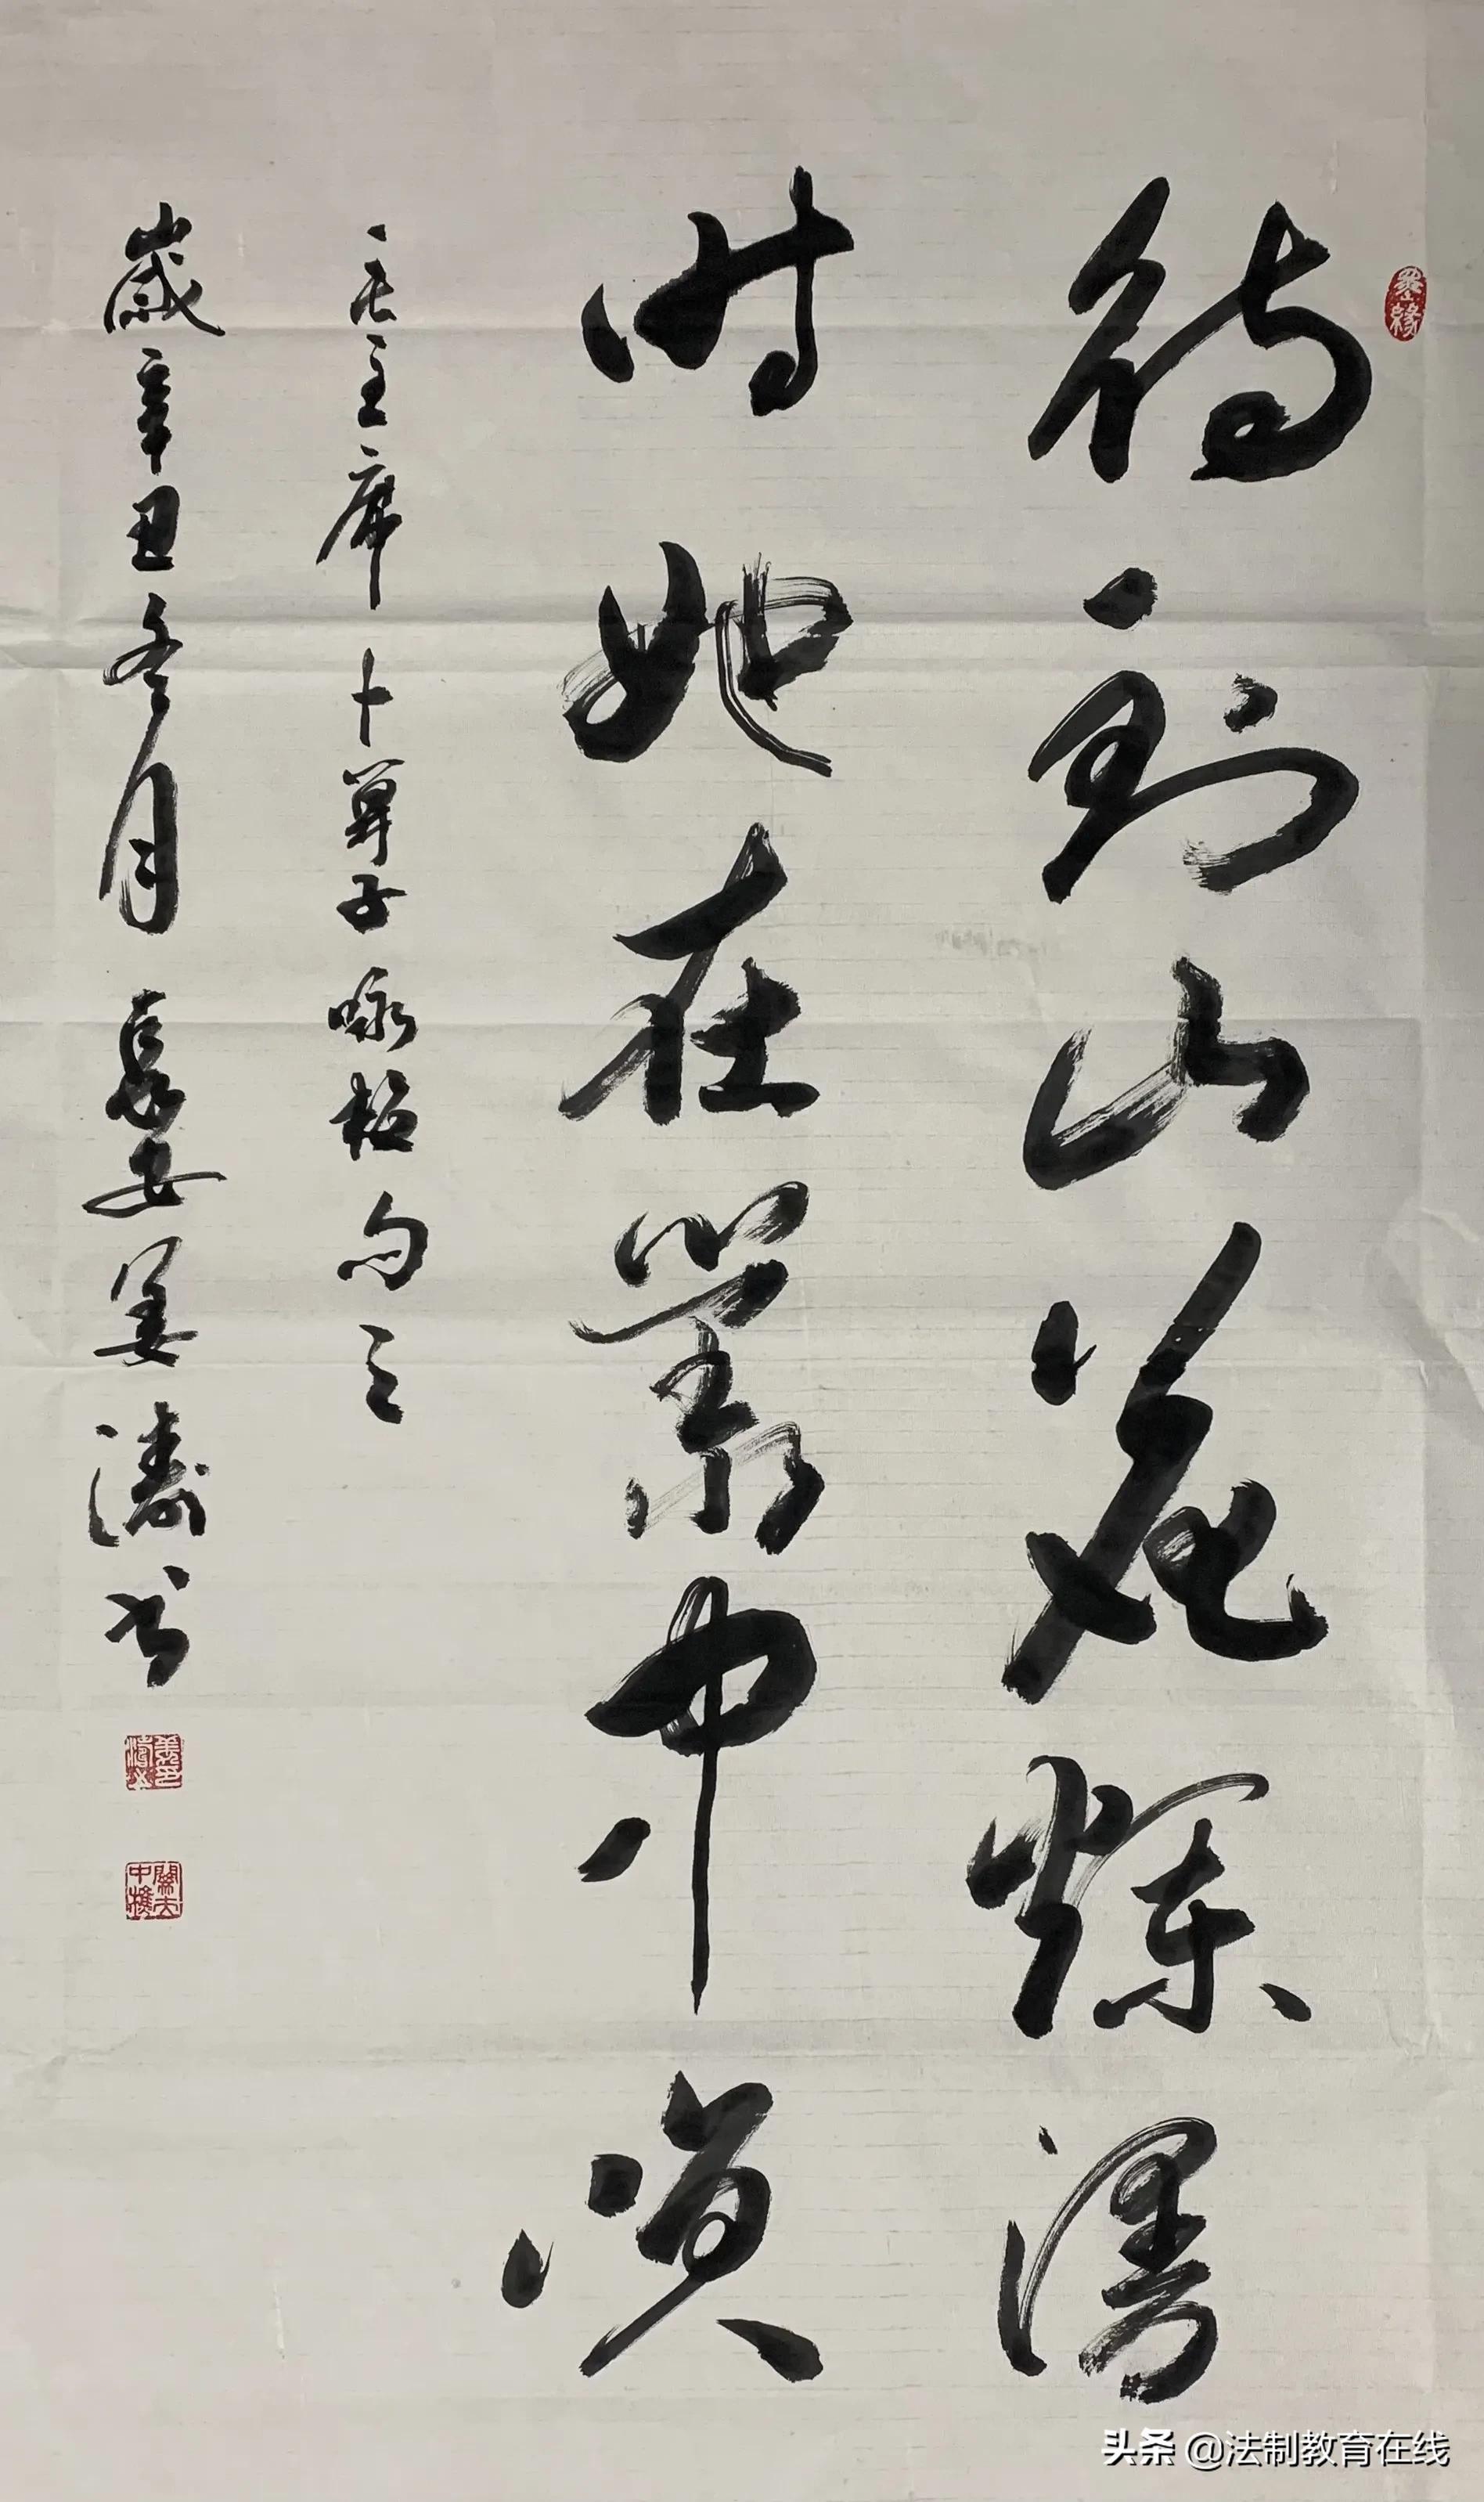 墨緣
待到山花爛漫
时她在叢中笑
毛主席卜算子咏梅句之
歲辛丑冬月長安姜濤书
头条 @法制教育在线